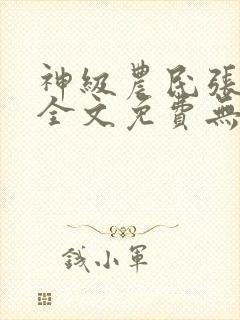 神級農民張
全文免費無
錢小軍